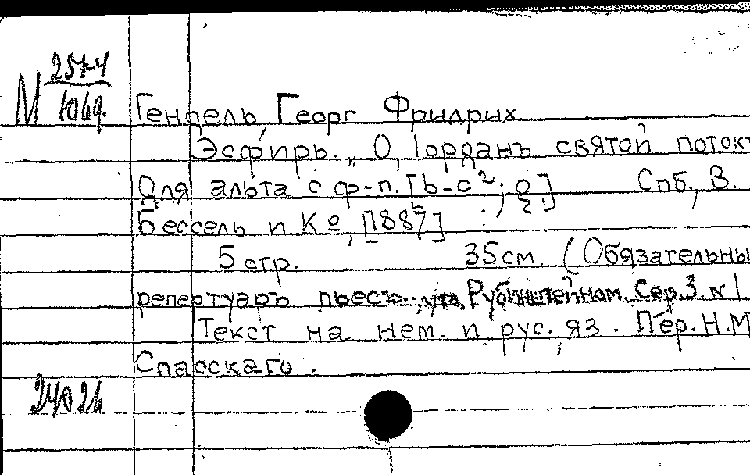 М 257-4
1069.
Гендель, Георг Фридрих
Эсфирь. „О Іорданъ святой поток
Для альта с ф-п. [b-c²; ]
Спб, В.
Бессель и Ко, [1887]
5 стр. 35 см. (Обязательны
репертуаръ пьесъ Рубинштейном. Сер. 3. № 1
Текст на нем. и рус. яз. Пер. Н. М
Спасскаго.
24026